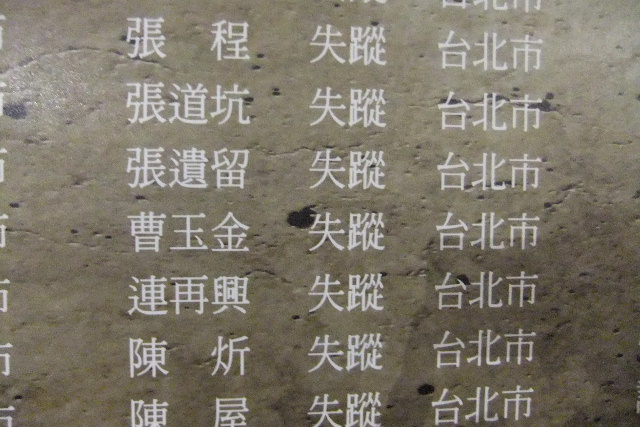 台北市
張　程　失蹤　台北市
張道坑　失蹤　台北市
張遺留　失蹤　台北市
曹玉金　失蹤　台北市
連再興　失蹤　台北市
陳　炘　失蹤　台北市
陳　屋　失蹤　台北市